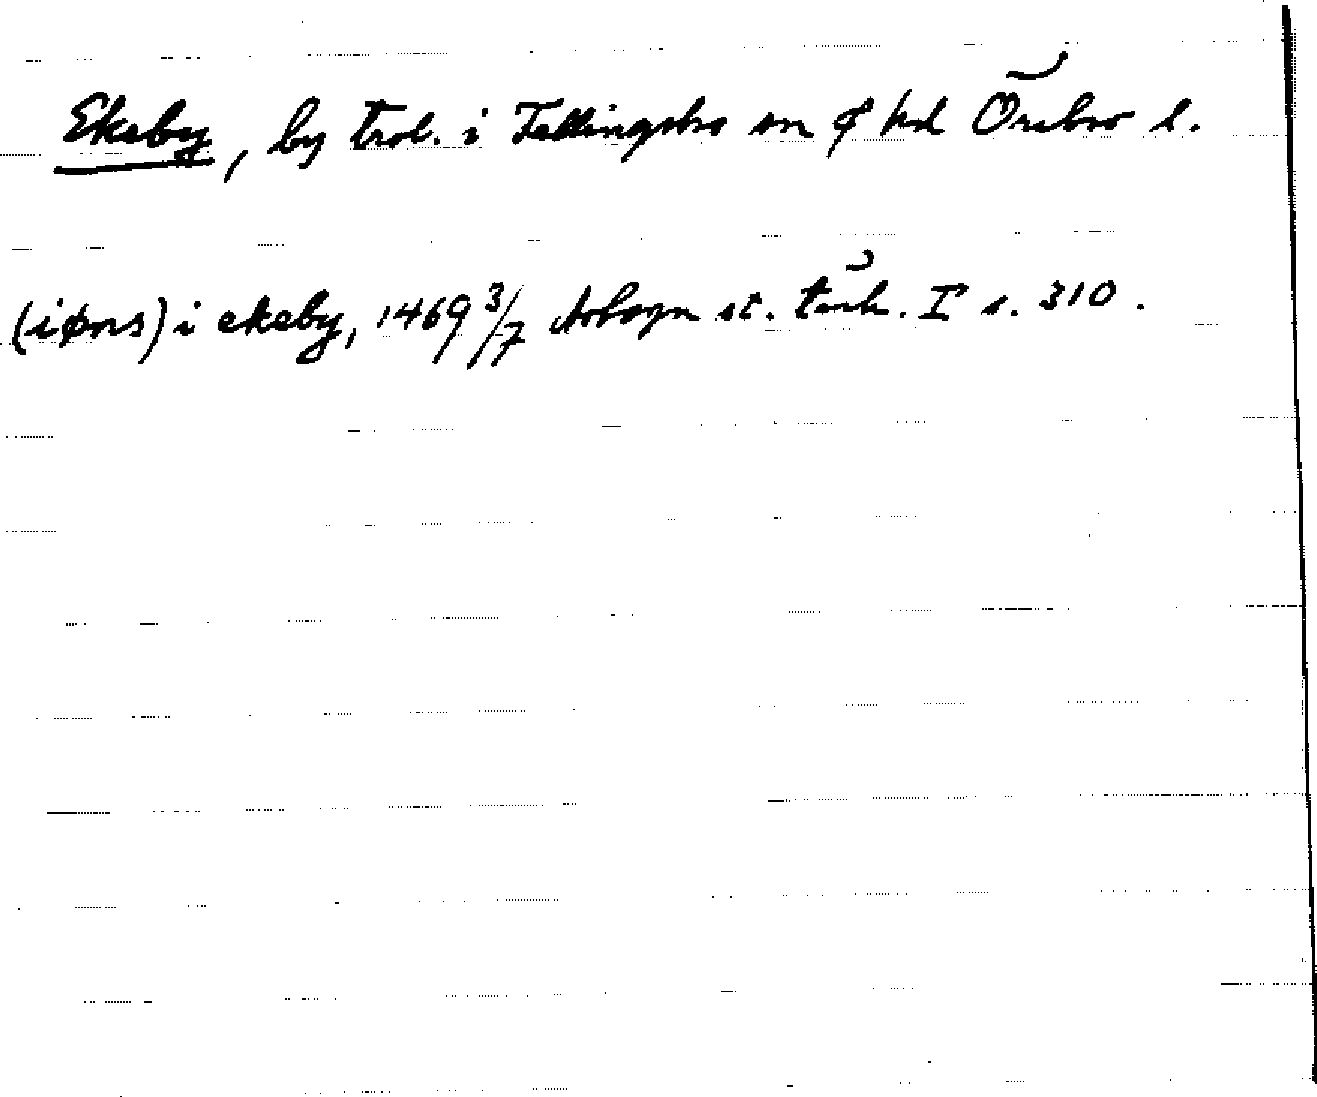 Ekeby, by trol. i Fellingsbro sn o hd Örebro l.
(iøns) i ekeby, 1469 3/7 Arboga st. tänk. I s. 310.